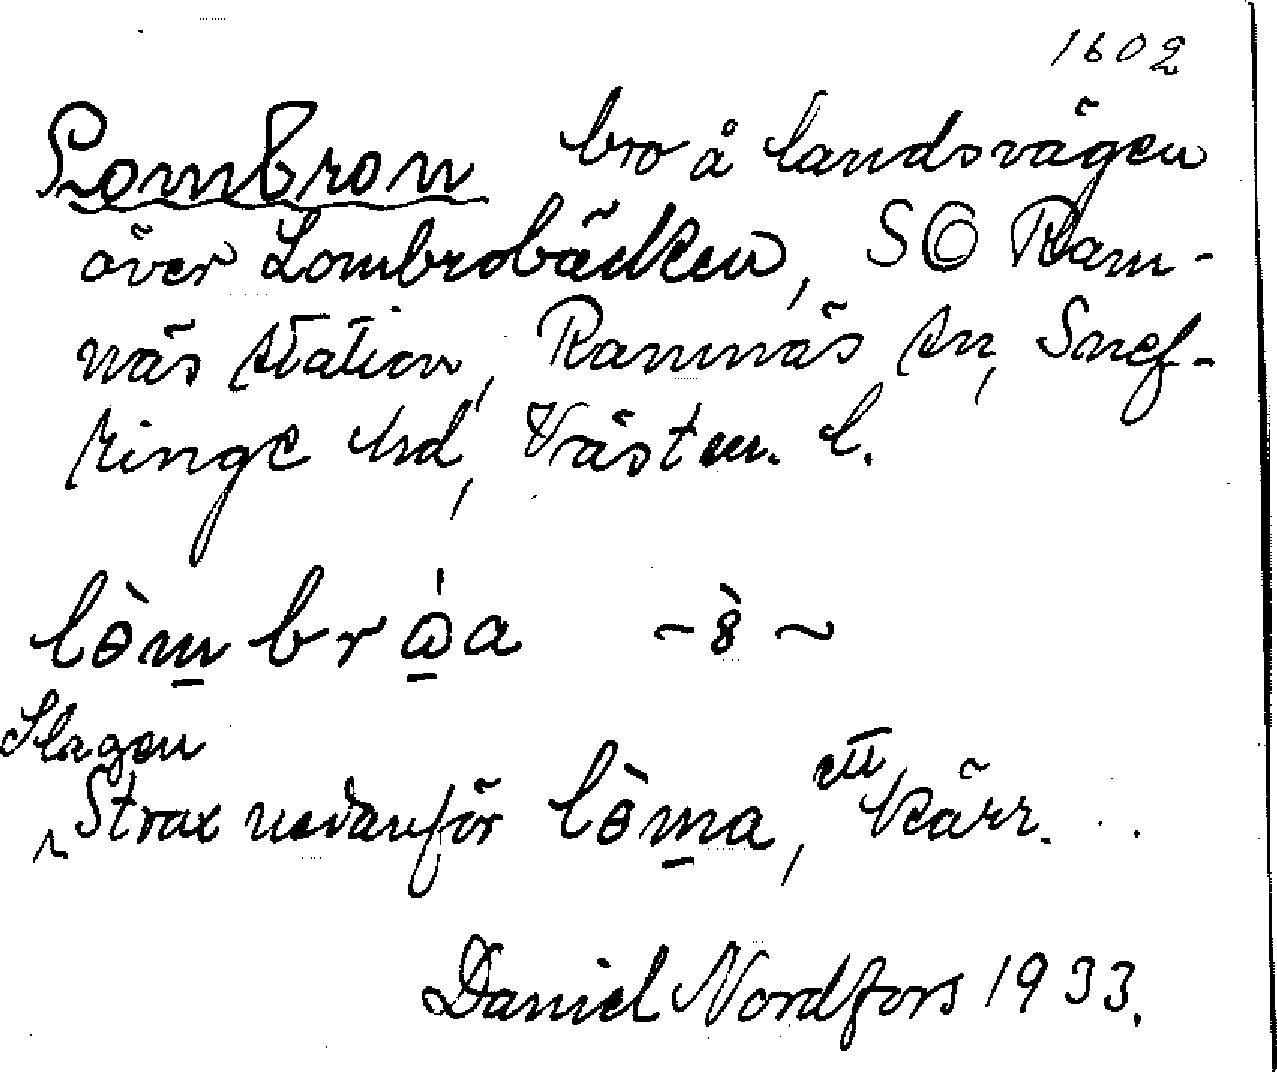 1602
Lombron bro å landsvägen
över Lombrobäcken, SO Ram-
näs station, Ramnäs sn, Snef-
ringe hd, Västm. l.
lòm bróa - ò ~
Slagen
Strax nedanför lòma, ett kärr.
Daniel Nordfors 1933.